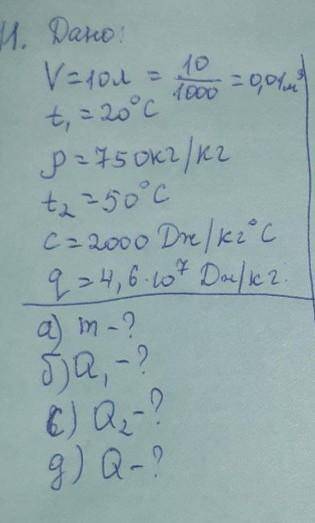 11. Дано:
V = 10л = 10/1000 = 0,01м³
t₁ = 20°C
ρ = 750кг/кг
t₂ = 50°C
c = 2000 Дж/кг°C
q = 4,6·10⁷ Дж/кг.
а) m - ?
б) Q₁ - ?
с) Q₂ - ?
д) Q - ?